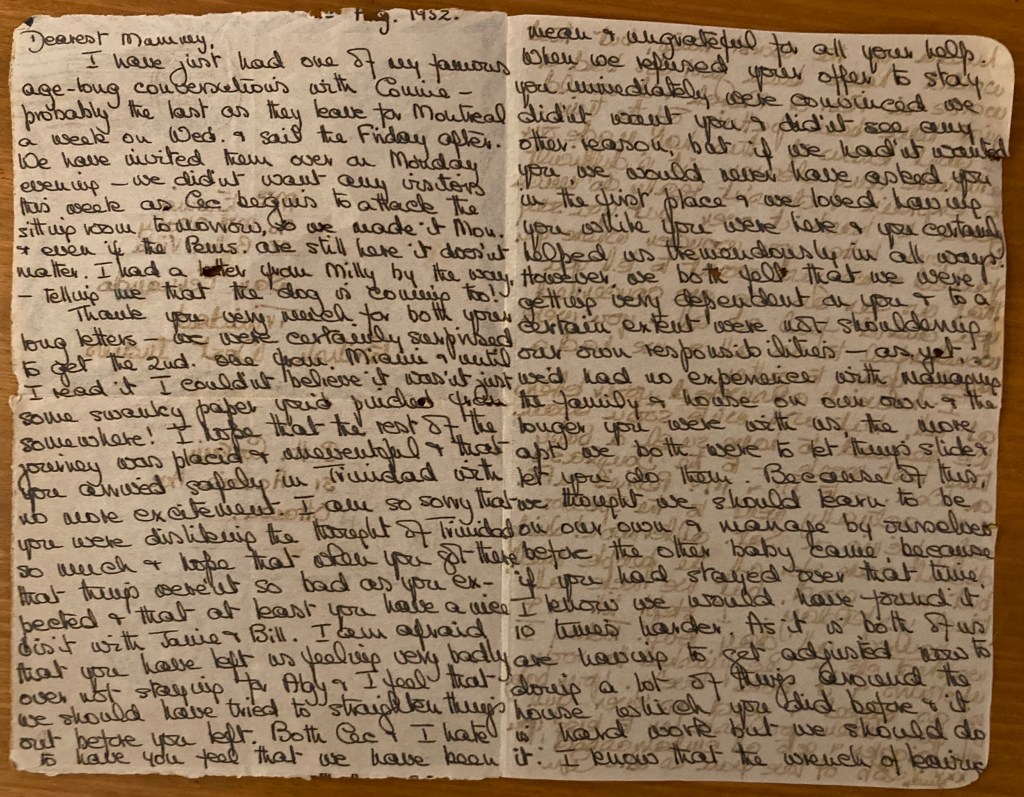 Aug. 1952.
Dearest Mammy,
I have just had one of my famous
age-long conversations with Connie –
probably the last as they leave for Montreal
a week on Wed. & sail the Friday after.
We have invited them over on Monday
evening – we didn't want any visitors
this week as Cec begins to attack the
sitting room tomorrow, so we made it Mon.
& even if the are still here it does'nt
matter. I had a letter from Milly by the way,
– telling me that the dog is coming too!
Thank you very much for both your
long letters – we were certainly surprised
to get the 2nd. one from Miami & until
I read it I could'nt believe it was'nt just
some swanky paper you'd pinched from
somewhere! I hope that the rest of the
journey was placid & uneventful & that
you arrived safely in Trinidad with
no more excitement. I am so sorry that
you were disliking the thought of Trinidad
so much & hope that when you got there
that things were'nt so bad as you ex-
pected & that at least you have a nice
visit with Janie & Bill. I am afraid
that you have left us feeling very badly
over not staying for & I feel that
we should have tried to straighten things
out before you left. Both Cec & I hate
to have you feel that we have been
mean & ungrateful for all your help.
When we refused your offer to stay
you immediately were convinced we
did'nt want you & did'nt see any
other reason, but if we had'nt wanted
you, we would never have asked you
in the first place & we loved having
you while you were here & you certainly
helped us tremendously in all ways.
However, we both felt that we were
getting very dependent on you & to a
certain extent were not shouldering
our own responsibilities – as yet,
we'd had no experience with managing
the family & house on our own & the
longer you were with us, the more
apt we both were to let things slide &
let you do them. Because of this,
we thought we should learn to be
on our own & manage by ourselves
before the other baby came because
if you had stayed over that time,
I know we would have found it
10 times harder. As it is both of us
are having to get adjusted now to
doing a lot of things around the
house which you did before & it
is hard work but we should do
it. I know that the wrench of leaving